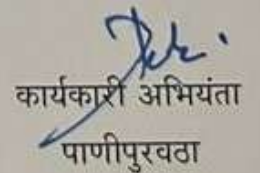 कार्यकारी अभियंता
पाणीपुरवठा